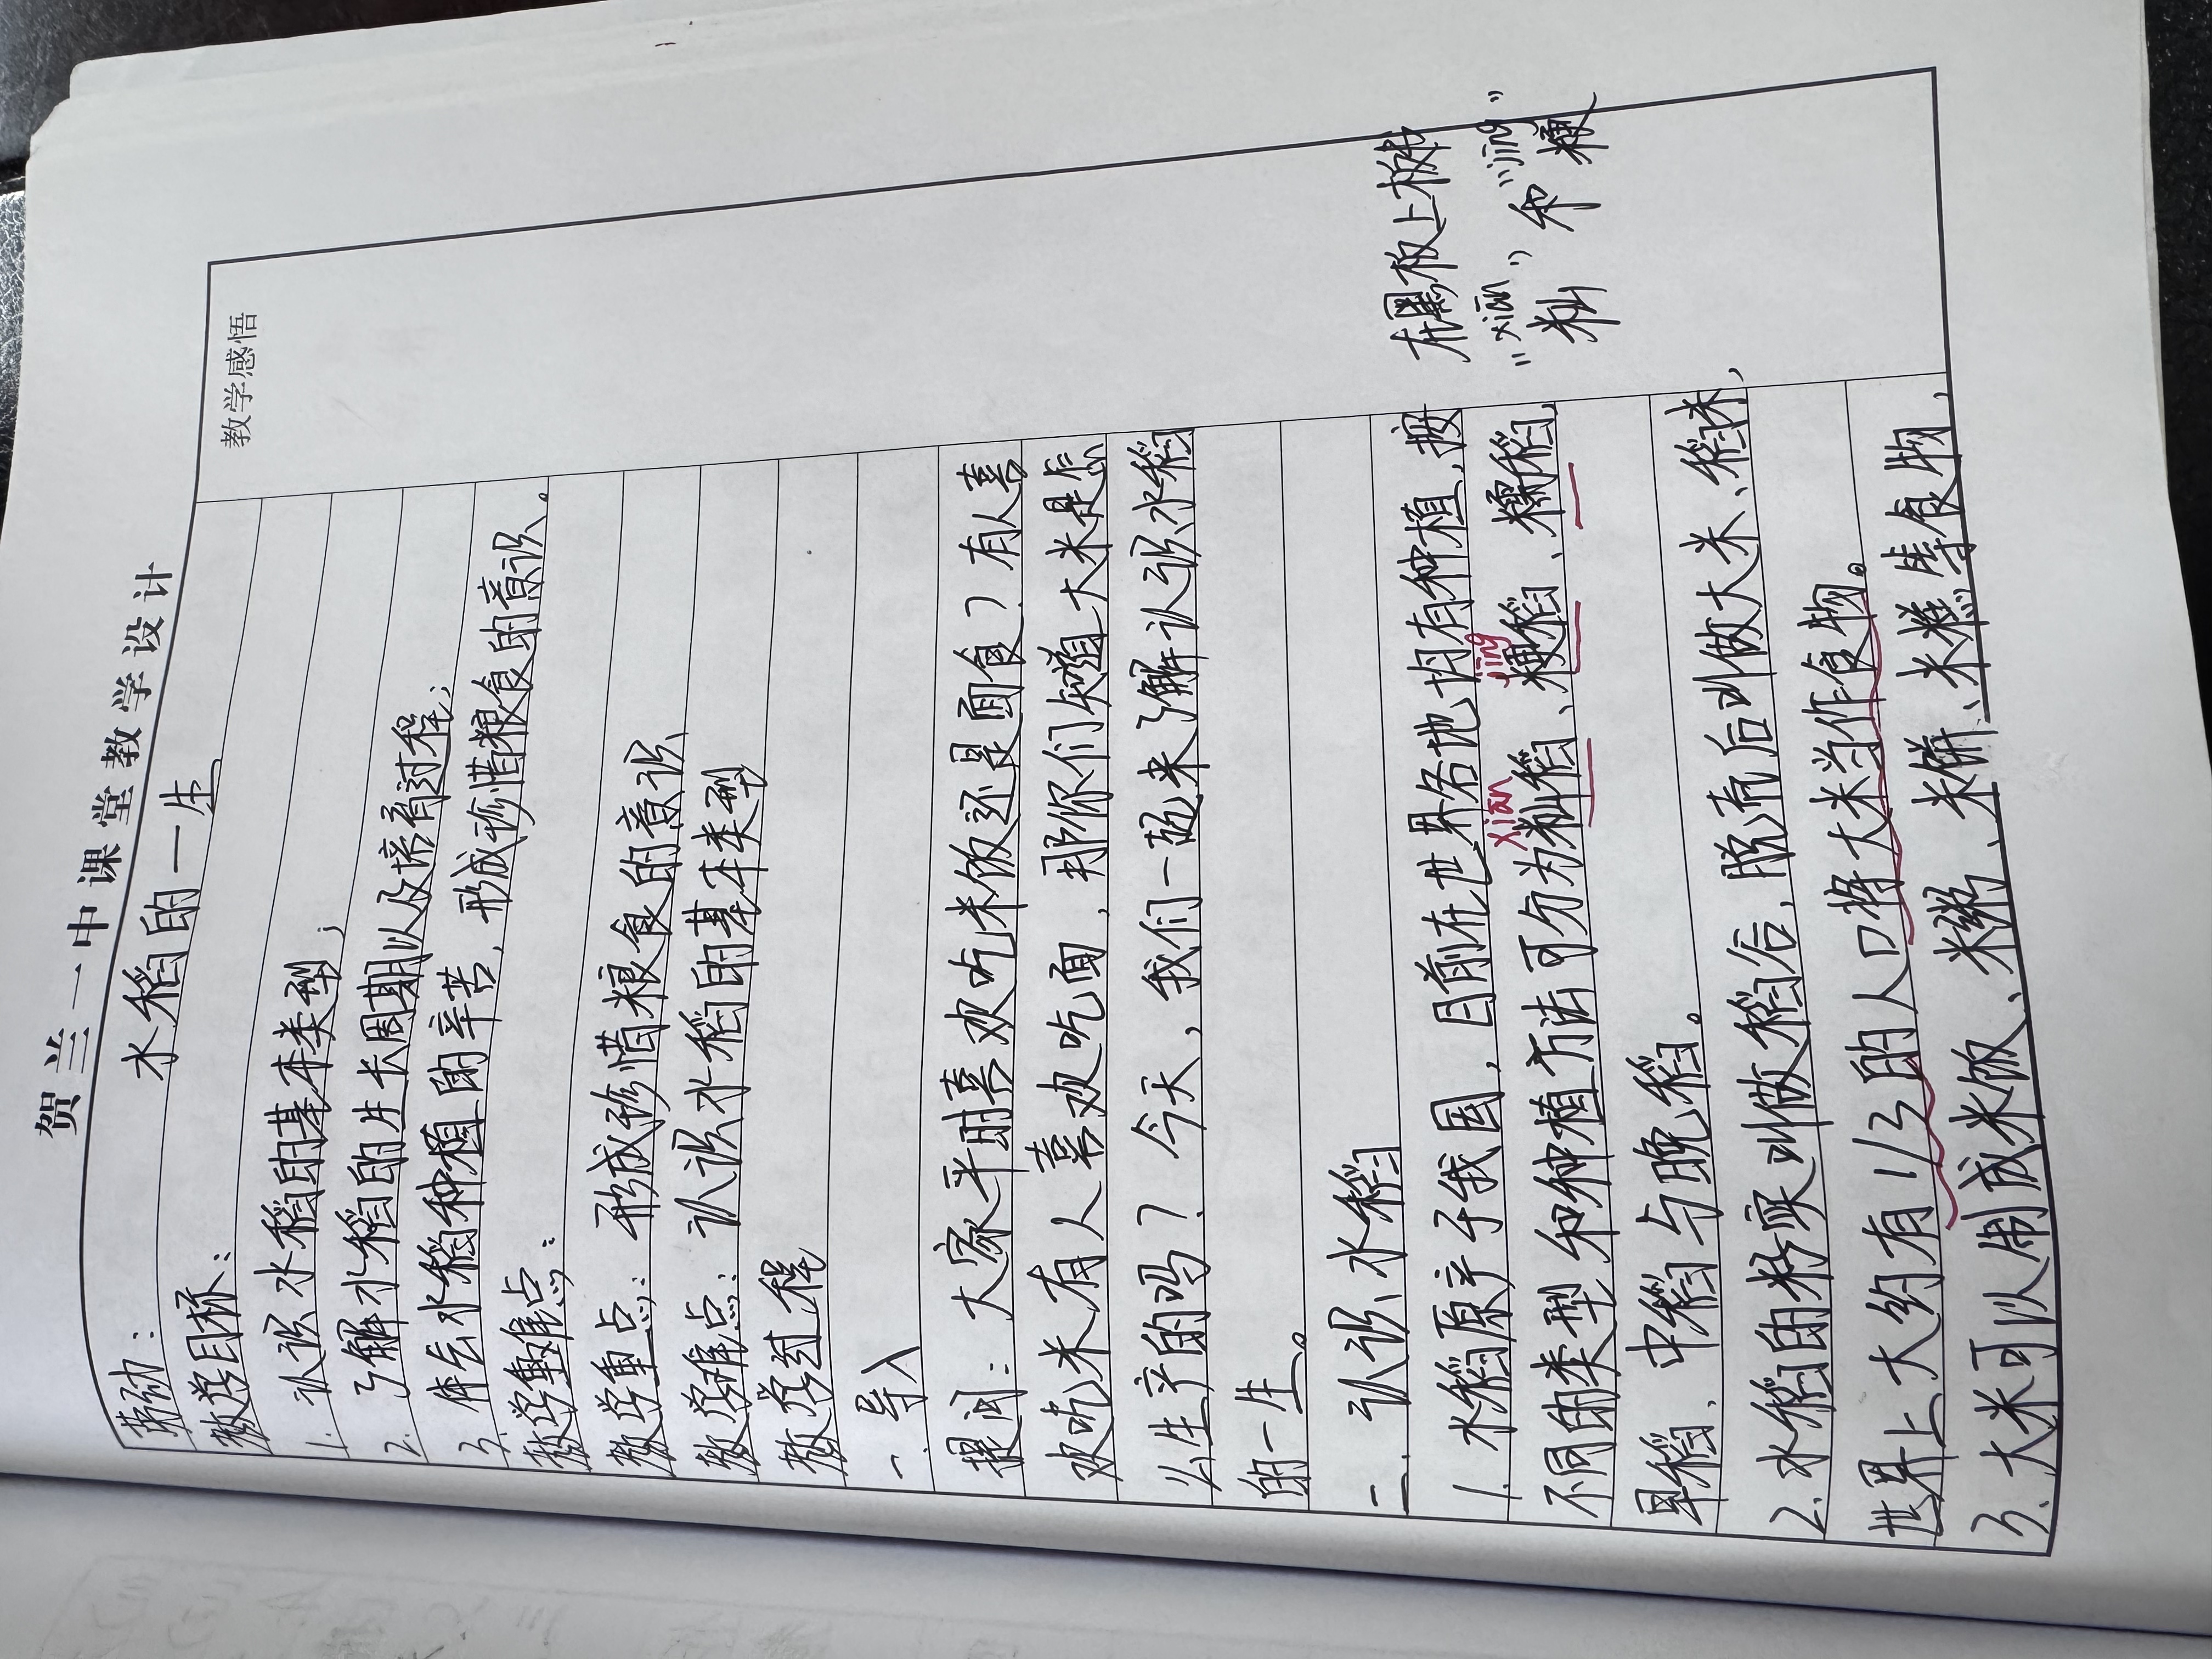 贺兰一中课堂教学设计
劳动：
水稻的一生
教学感悟
教学目标：
1. 认识水稻的基本类型；
2. 了解水稻的生长周期以及培育过程；
3. 体会水稻种植的辛苦，形成珍惜粮食的意识。
教学重难点：
教学重点：形成珍惜粮食的意识
教学难点：认识水稻的基本类型
教学过程
一. 导入
提问：大家平时喜欢吃米饭还是面食？有人喜
欢吃米有人喜欢吃面，那你们知道大米是怎
么生产的吗？今天，我们一起来了解认识水稻
的一生。
二. 认识水稻
1. 水稻原产于我国，目前在世界各地均有种植，按
不同的类型和种植方法可分为籼稻、粳稻、糯稻，
xiān jīng
早稻、中稻与晚稻。
2. 水稻的籽实叫做稻谷，脱壳后叫做大米、稻米，
世界上大约有1/3的人口将大米当作食物。
3. 大米可以制成米饭、米粥、米饼、米糕等食物，
在黑板上板书
“xiān” “jīng”
籼 和 粳